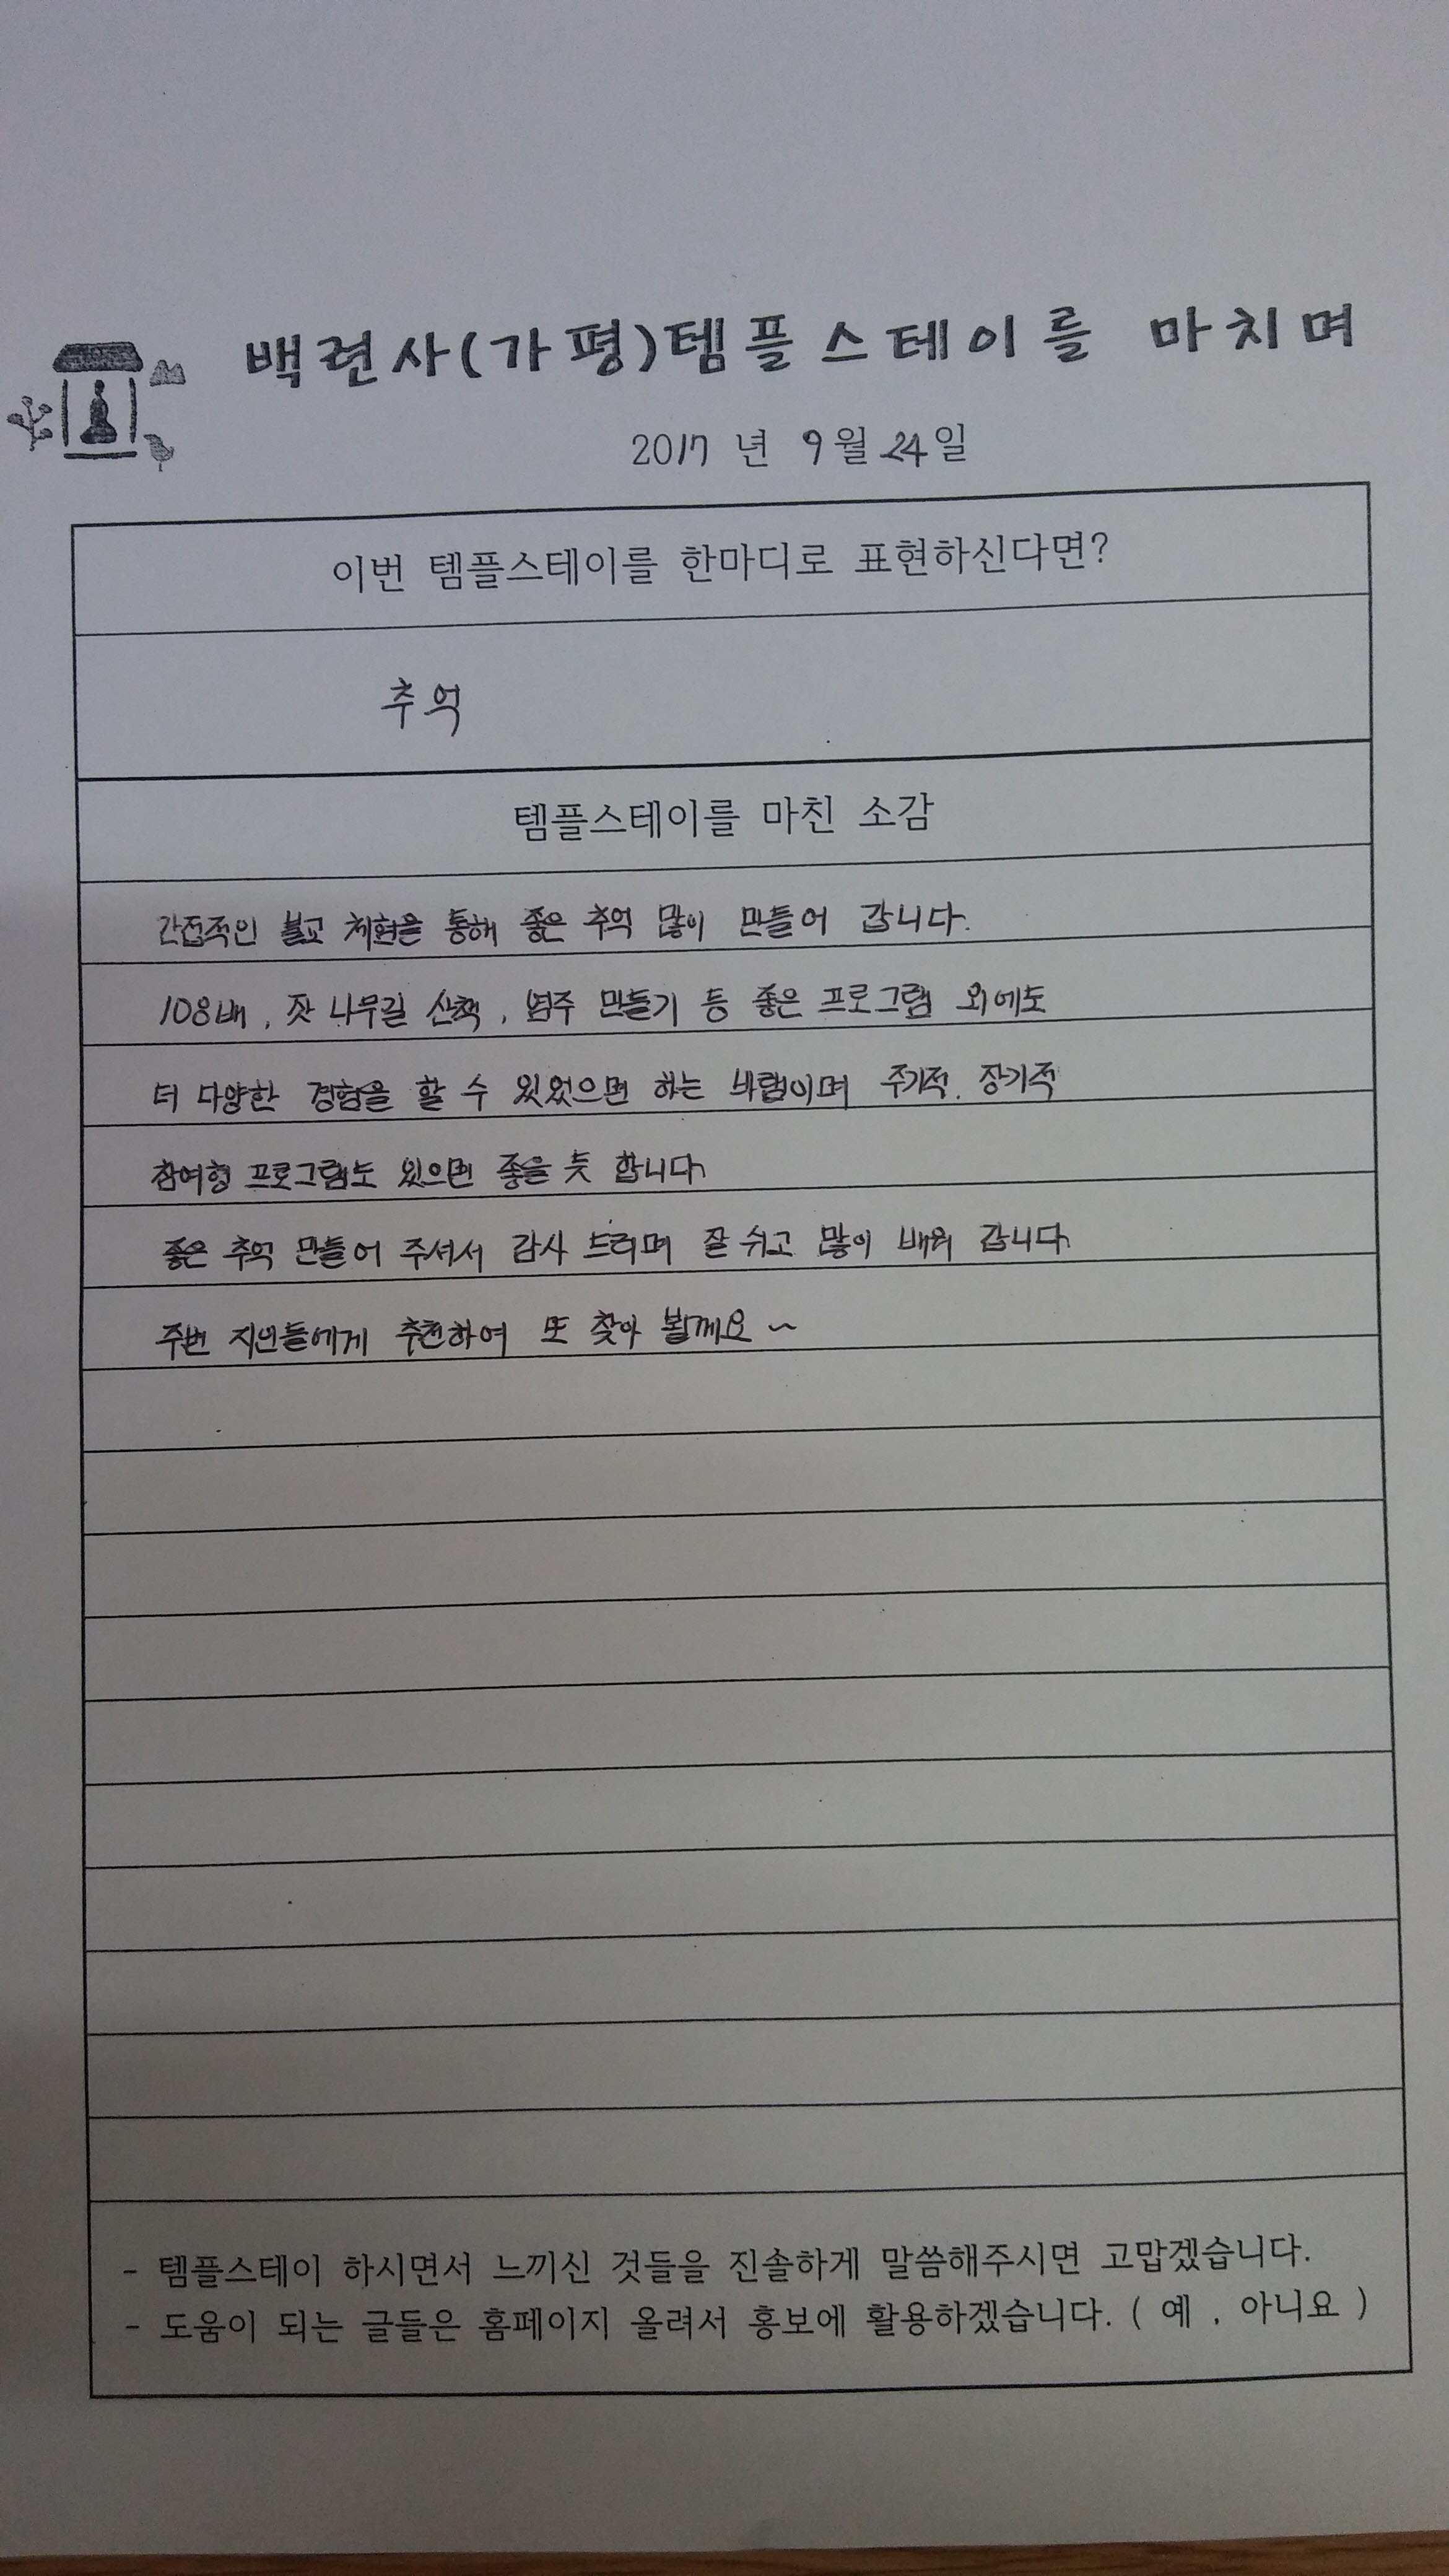 백련사(가평)템플스테이를 마치며
2017 년 9월 24일
이번 템플스테이를 한마디로 표현하신다면?
추억
템플스테이를 마친 소감
간접적인 불교 체험을 통해 좋은 추억 많이 만들어 갑니다.
108배, 잣 나무길 산책, 염주 만들기 등 좋은 프로그램 외에도
더 다양한 경험을 할 수 있었으면 하는 바램이며 주기적, 장기적
참여형 프로그램도 있으면 좋을 듯 합니다
좋은 추억 만들어 주셔서 감사 드리며 잘 쉬고 많이 배워 갑니다.
주변 지인들에게 추천하여 또 찾아 뵐께요 ~
- 템플스테이 하시면서 느끼신 것들을 진솔하게 말씀해주시면 고맙겠습니다.
- 도움이 되는 글들은 홈페이지 올려서 홍보에 활용하겠습니다. ( 예 , 아니요 )